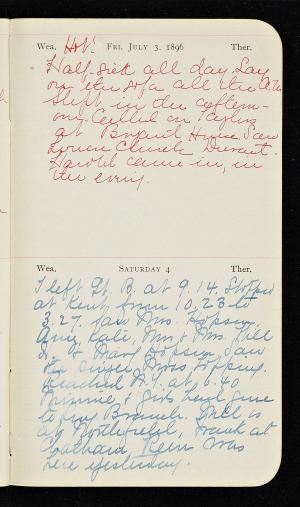 Wea. Hot! Fri. July 3, 1896 Ther.
Half-sick all day. Lay
on the sofa all the A.M.
Slept in the aftern-
oon. Called on Taylors
at Bryant House. Saw
Louise Church Durant.
Harold came in, in
the eve'ng.
Wea. Saturday 4 Ther.
I left Gt. B. at 9.14. Stopped
at Kent from 10.23 to
3.27. Saw Mrs. Hopson,
Ann, Kate, Mr & Mrs. Will
& Mary Hopson. Saw
the
Reached N.Y. at 6.40
Minnie & Girls had gone
to Branch. Phil is
at Northfield, Frank at
was
here yesterday.